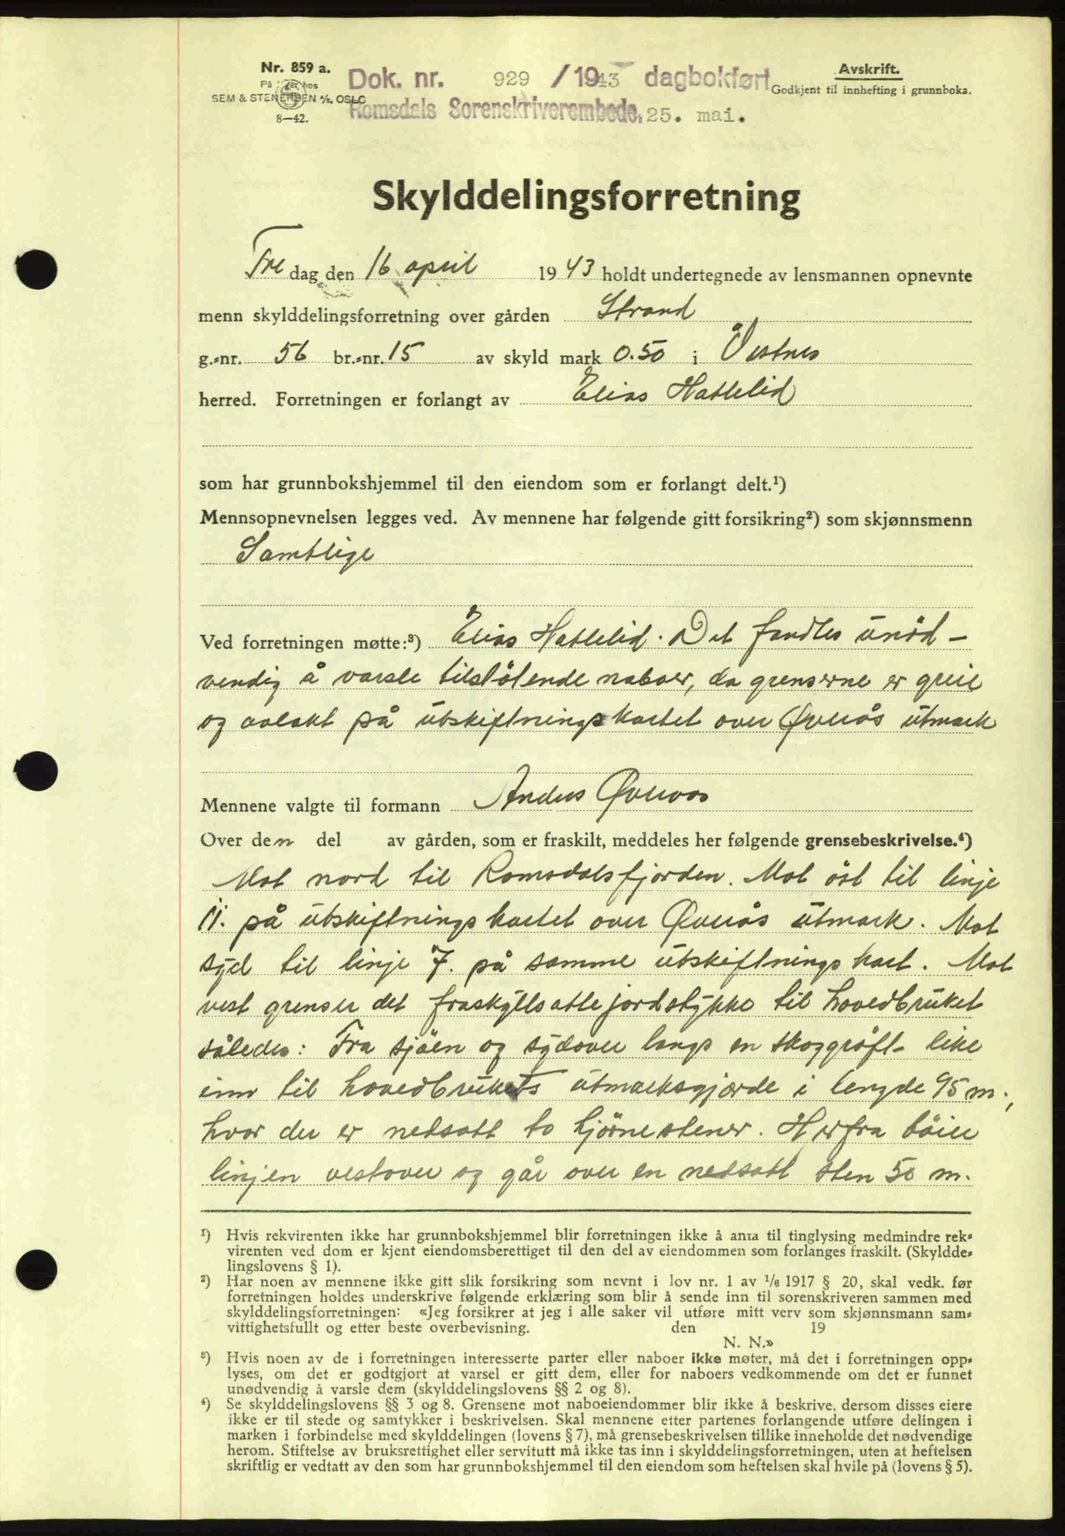 Nr. 859 a.
På hos
SEM & STENERSEN A/S, OSLO
8—42.
Dok. nr. 929 / 1943 dagbokført
Romsdals Sorenskriverembede, 25. mai.
Avskrift.
Godkjent til innhefting i grunnboka.
Skylddelingsforretning
Fredag den 16 april 1943 holdt undertegnede av lensmannen opnevnte
menn skylddelingsforretning over gården Strand
g.-nr. 56 br.-nr. 15 av skyld mark 0.50 i Vestnes
herred. Forretningen er forlangt av Elias Hatlelid
som har grunnbokshjemmel til den eiendom som er forlangt delt.¹)
Mennsopnevnelsen legges ved. Av mennene har følgende gitt forsikring²) som skjønnsmenn
Samtlige
Ved forretningen møtte:³) Elias Hatlelid. Det fandtes unöd-
vendig å varsle tilstötende naboer, da grenserne er greie
og avlakt på utskiftningskartet over Øverås utmark
Mennene valgte til formann Anders Øveraas
Over den del av gården, som er fraskilt, meddeles her følgende grensebeskrivelse.⁴)
Mot nord til Romsdalsfjorden. Mot öst til linje
11. på utskiftningskartet over Øverås utmark. Mot
syd til linje 7. på samme utskiftningskart. Mot
vest grenser det fraskyllsatte jordstykke til hovedbruket
således: Fra sjöen og sydover langs en skoggröft like
inn til hovedbrukets utmarksgjærde i lengde 95 m.,
hvor der er netsatt to hjörnestener. Herfra böier
linjen vestover og går over en nedsatt sten 50 m.
¹) Hvis rekvirenten ikke har grunnbokshjemmel blir forretningen ikke å anta til tinglysing medmindre rek-
virenten ved dom er kjent eiendomsberettiget til den del av eiendommen som forlanges fraskilt. (Skyldde-
lingslovens § 1).
²) Har noen av mennene ikke gitt slik forsikring som nevnt i lov nr. 1 av ¹/₆ 1917 § 20, skal vedk. før
forretningen holdes underskrive følgende erklæring som blir å sende inn til sorenskriveren sammen med
skylddelingsforretningen: «Jeg forsikrer at jeg i alle saker vil utføre mitt verv som skjønnsmann sam-
vittighetsfullt og etter beste overbevisning. den 19
N. N.»
³) Hvis noen av de i forretningen interesserte parter eller naboer ikke møter, må det i forretningen opp-
lyses, om det er godtgjort at varsel er gitt dem, eller for naboers vedkommende om det er funnet
unødvendig å varsle dem (skylddelingslovens §§ 2 og 8).
⁴) Se skylddelingslovens §§ 3 og 8. Grensene mot naboeiendommer blir ikke å beskrive, dersom disses eiere
ikke er til stede og samtykker i beskrivelsen. Skal mennene etter partenes forlangende utføre delingen i
marken i forbindelse med skylddelingen (lovens § 7), må grensebeskrivelsen tillike inneholde det nødvendige
herom. Stiftelse av bruksrettighet eller servitutt må ikke tas inn i skylddelingsforretningen, uten at heftelsen
skriftlig er vedtatt av den som har grunnbokshjemmel til den eiendom som heftelsen skal hvile på (lovens § 5).